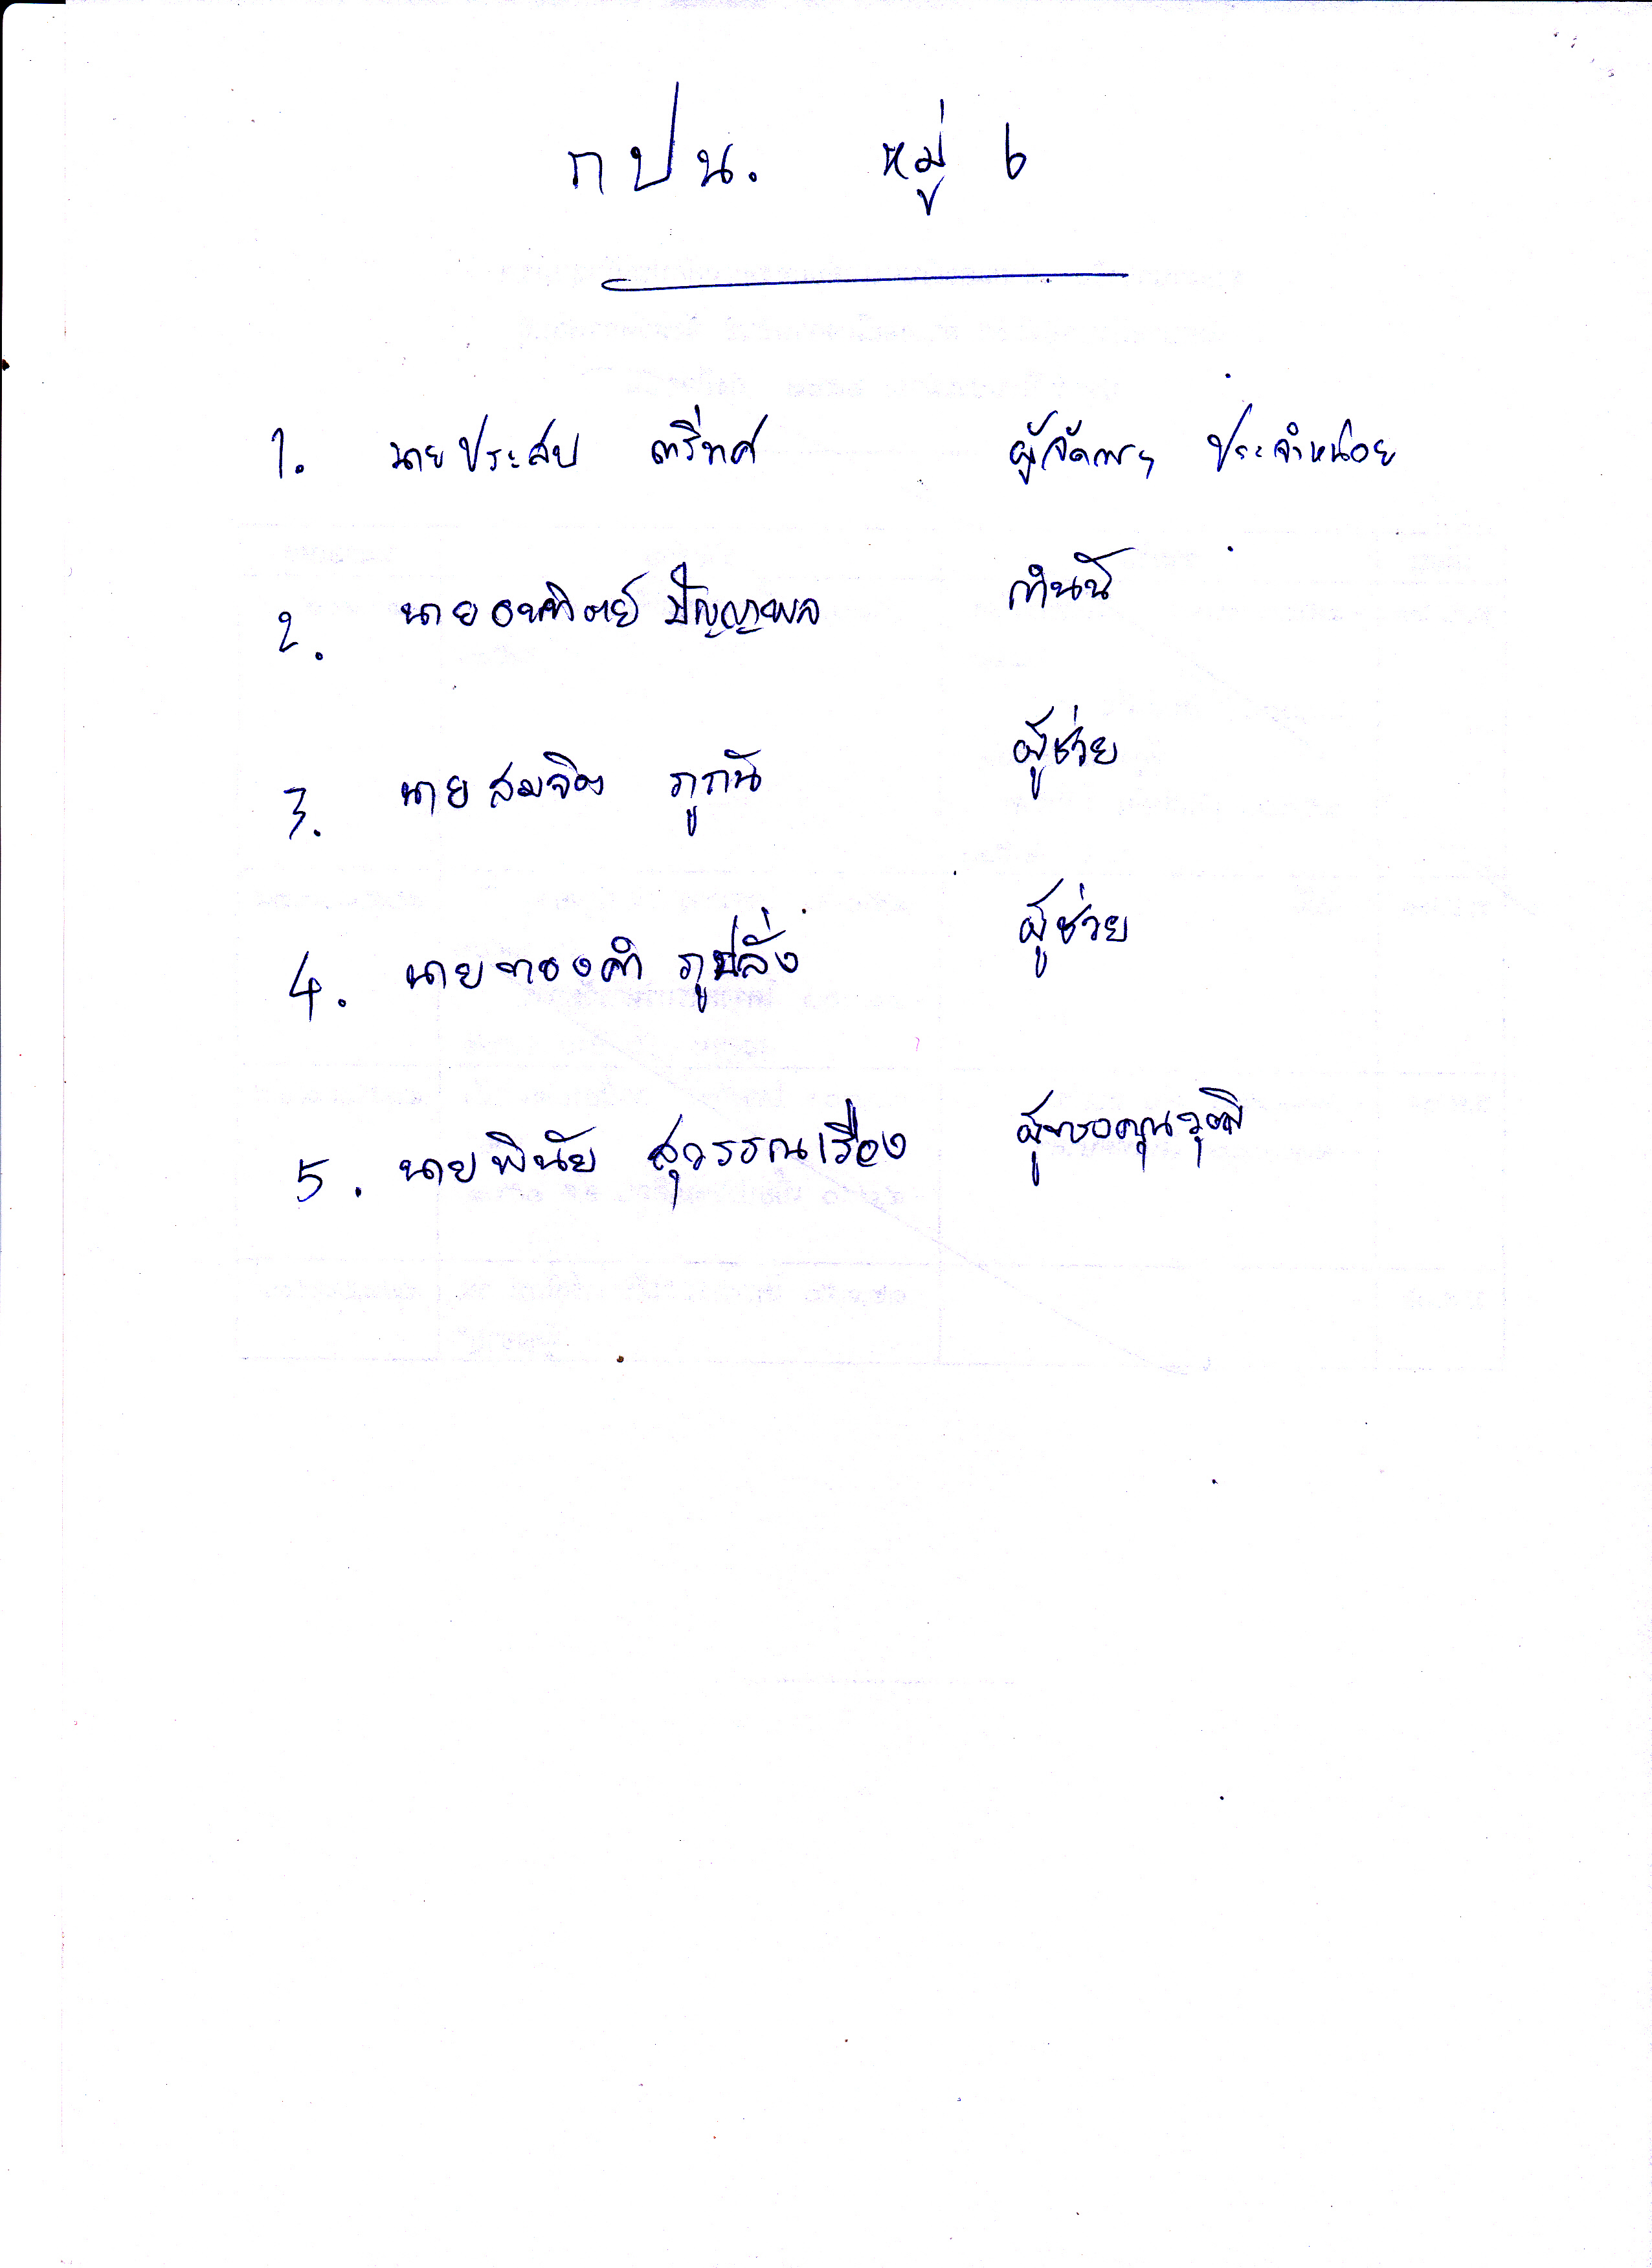 กปน. หมู่ 6
1. นายประสบ ตรีทศ ผู้จัดการฯ ประจำหน่อย
2. นายอาทิตย์ ปัญญาพล กำนัน
3. นายสมจิตร ภูกัน ผู้ช่วย
4. นายทองคำ ภูปลั่ง ผู้ช่วย
5. นายพินัย สุวรรณเรือง ผู้ทรงคุณวุฒิ